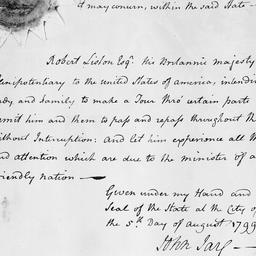 it may concern, within the said State —
Robert Liston Esqr. His Britannic majesty
lenipotentiary to the united States of america, intendin
and family to make a Tour thro' certain parts
ermit him and them to pass and repass throughout th
ithout Interruption: And let him experience all
nd attention which are due to the minister of a
riendly nation —
Given under my Hand and
Seal of the State at the City of
the 5th. Day of August 1799
John Jay —